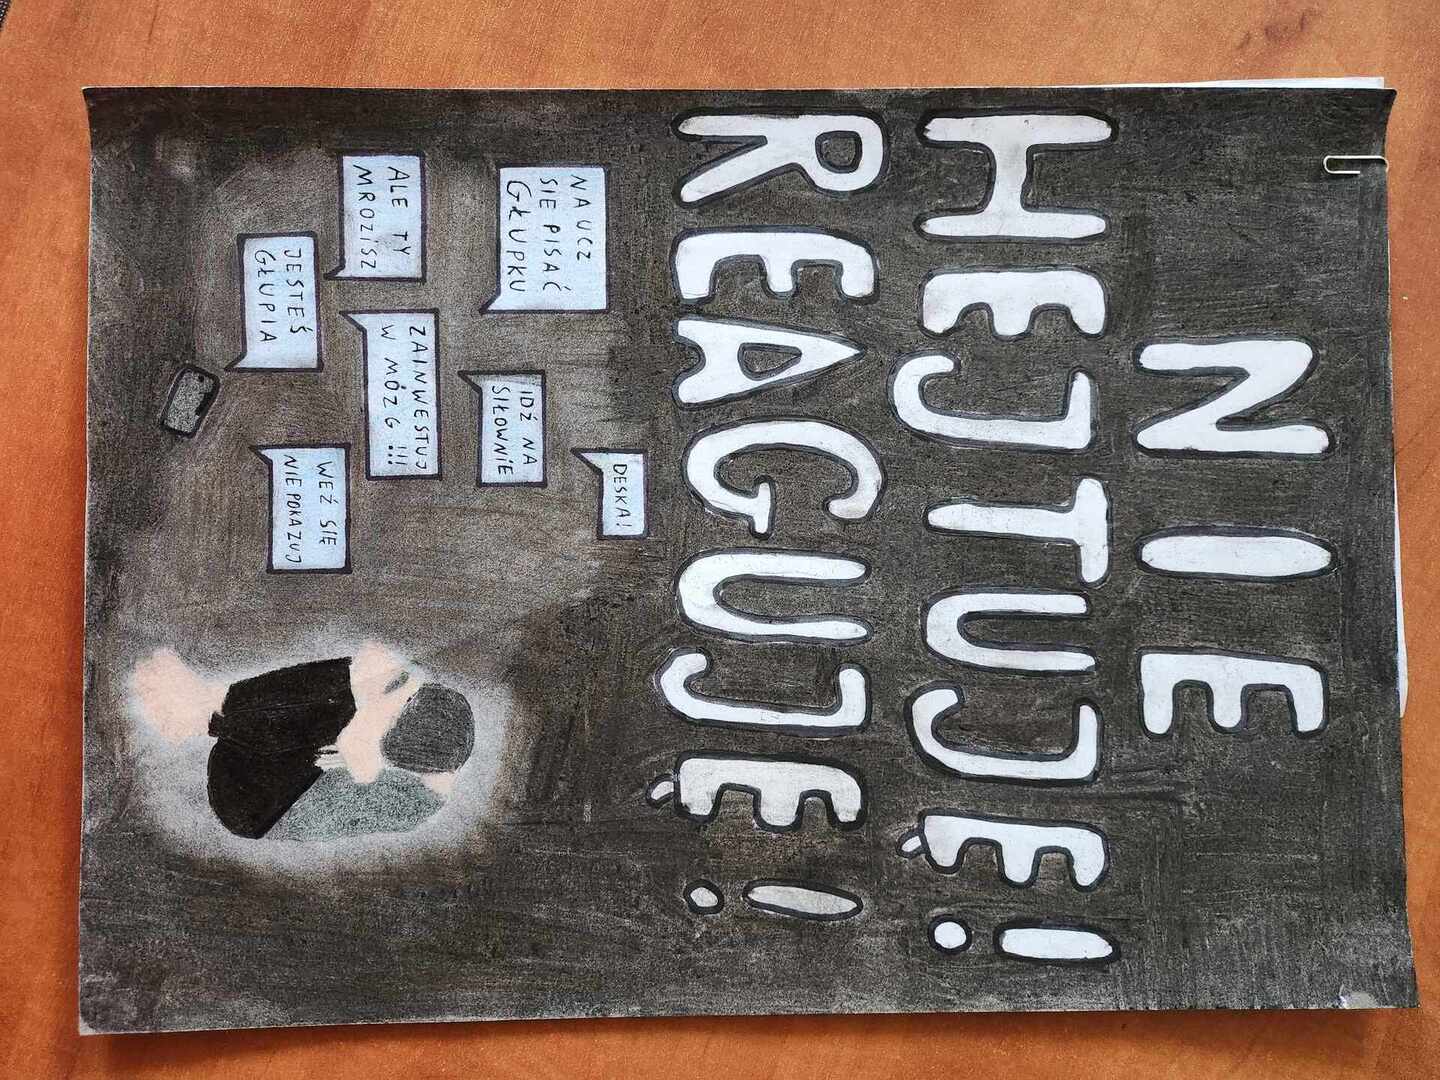 NIE
HEJTUJĘ!
REAGUJĘ!
DESKA!
NAUCZ
SIE PISAĆ
GŁUPKU
IDŹ NA
SIŁOWNIE
ALE TY
MROZISZ
ZAINWESTUJ
W MÓZG !!!
JESTEŚ
GŁUPIA
WEŹ SIĘ
NIE POKAZUJ